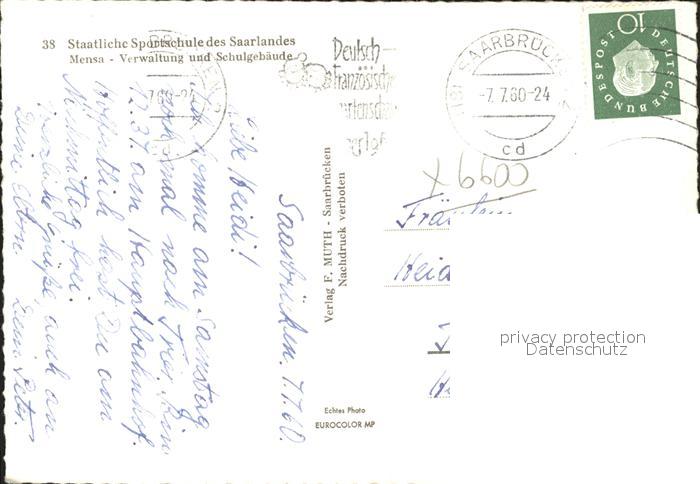 38 Staatliche Sportschule des Saarlandes
Mensa - Verwaltung und Schulgebäude
Deutsch
Französische
Gartenschau
SAARBRÜCK
-7.7.60-24
cd
10
DEUTSCHE BUNDESPOST
Saarbrücken. 7.7.60.
Liebe Heidi!
Ich komme am Samstag
noch mal nach Trier. Bin
12.37. am Hauptbahnhof.
Hoffentlich hast Du am
Nachmittag frei.
Herzliche Grüße auch an
Deine Eltern Dein Peter.
Verlag F. MUTH - Saarbrücken
Nachdruck verboten
Echtes Photo
EUROCOLOR MP
x 6600
Fräulein
Heid
privacy protection
Datenschutz